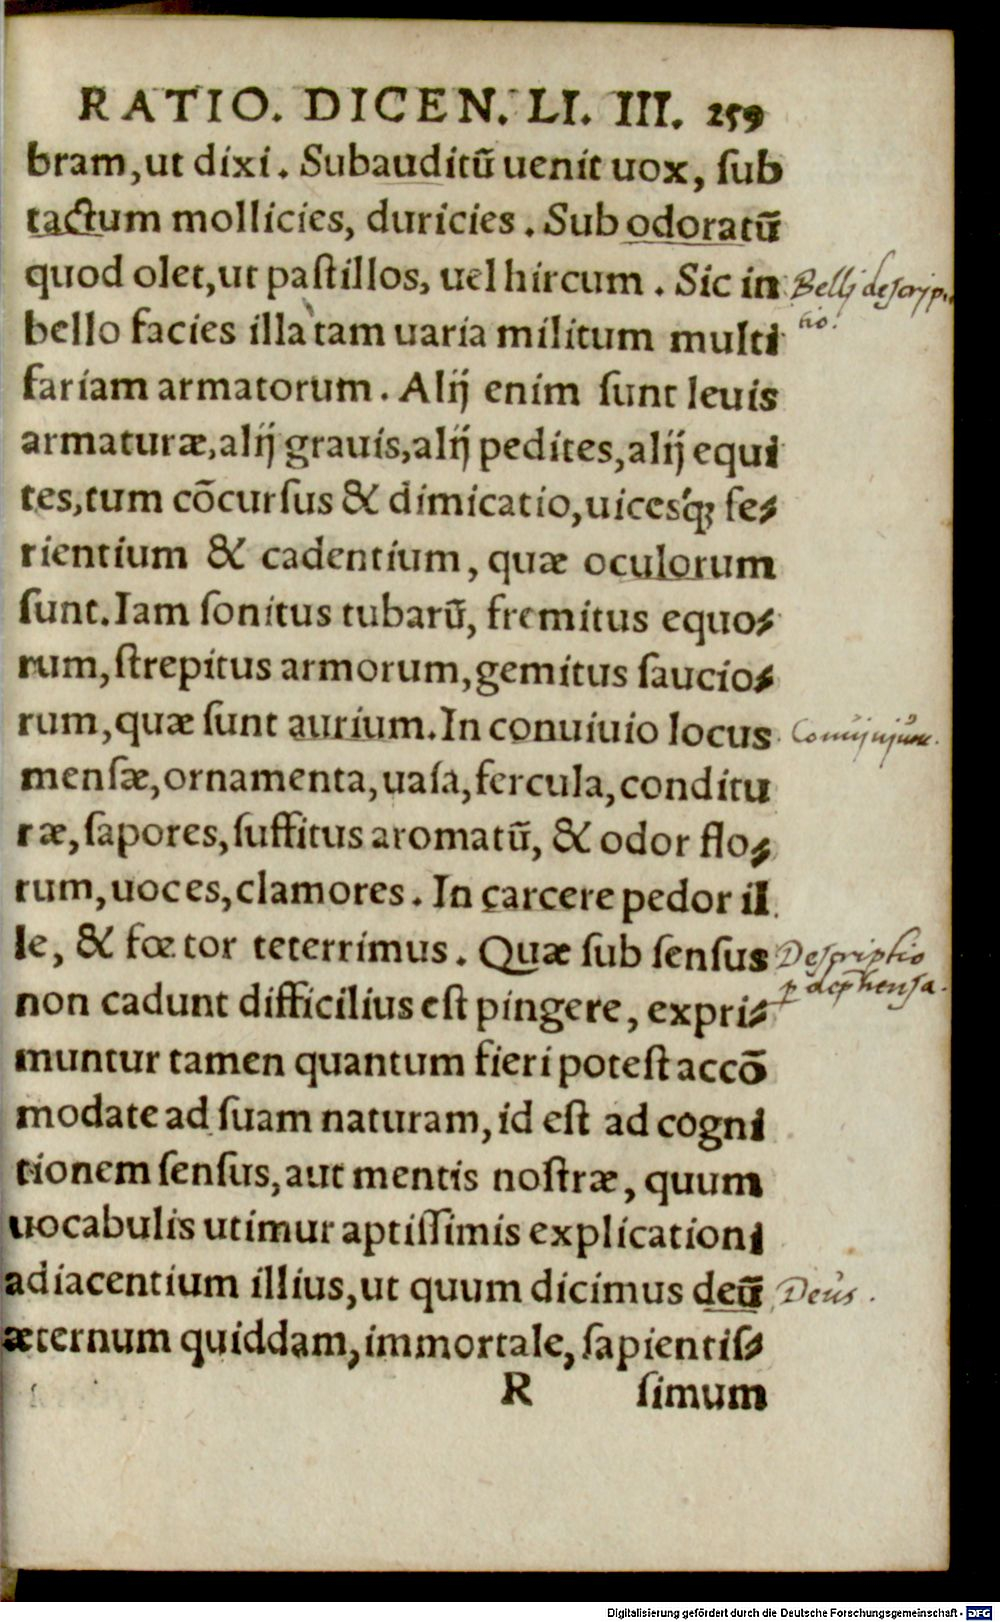 RATIO. DICEN. LI. III. 259
bram, ut dixi. Subauditū uenit uox, ſub
tactum mollicies, duricies. Sub odoratū
quod olet, ut paſtillos, uel hircum. Sic in
Bellj descrip
tio.
bello facies illa tam uaria militum multi
fariam armatorum. Alij enim ſunt leuis
armaturæ, alij grauis, alij pedites, alij equi
tes, tum cōcurſus & dimicatio, uicesq́ꝫ fe⸗
rientium & cadentium, quæ oculorum
ſunt. Iam ſonitus tubarū, fremitus equo⸗
rum, ſtrepitus armorum, gemitus ſaucio⸗
rum, quæ ſunt aurium. In conuiuio locus
menſæ, ornamenta, uaſa, fercula, conditu
ræ, ſapores, ſuffitus aromatū, & odor flo⸗
rum, uoces, clamores. In carcere pedor il
le, & fœtor teterrimus. Quæ ſub ſenſus
Descriptio
non cadunt difficilius eſt pingere, expri⸗
muntur tamen quantum fieri poteſt accō
modate ad ſuam naturam, id eſt ad cogni
tionem ſenſus, aut mentis noſtræ, quum
uocabulis utimur aptiſſimis explicationi
adiacentium illius, ut quum dicimus deū
Deus.
æternum quiddam, immortale, ſapientiſ⸗
R ſimum
Digitalisierung gefördert durch die Deutsche Forschungsgemeinschaft - DFG